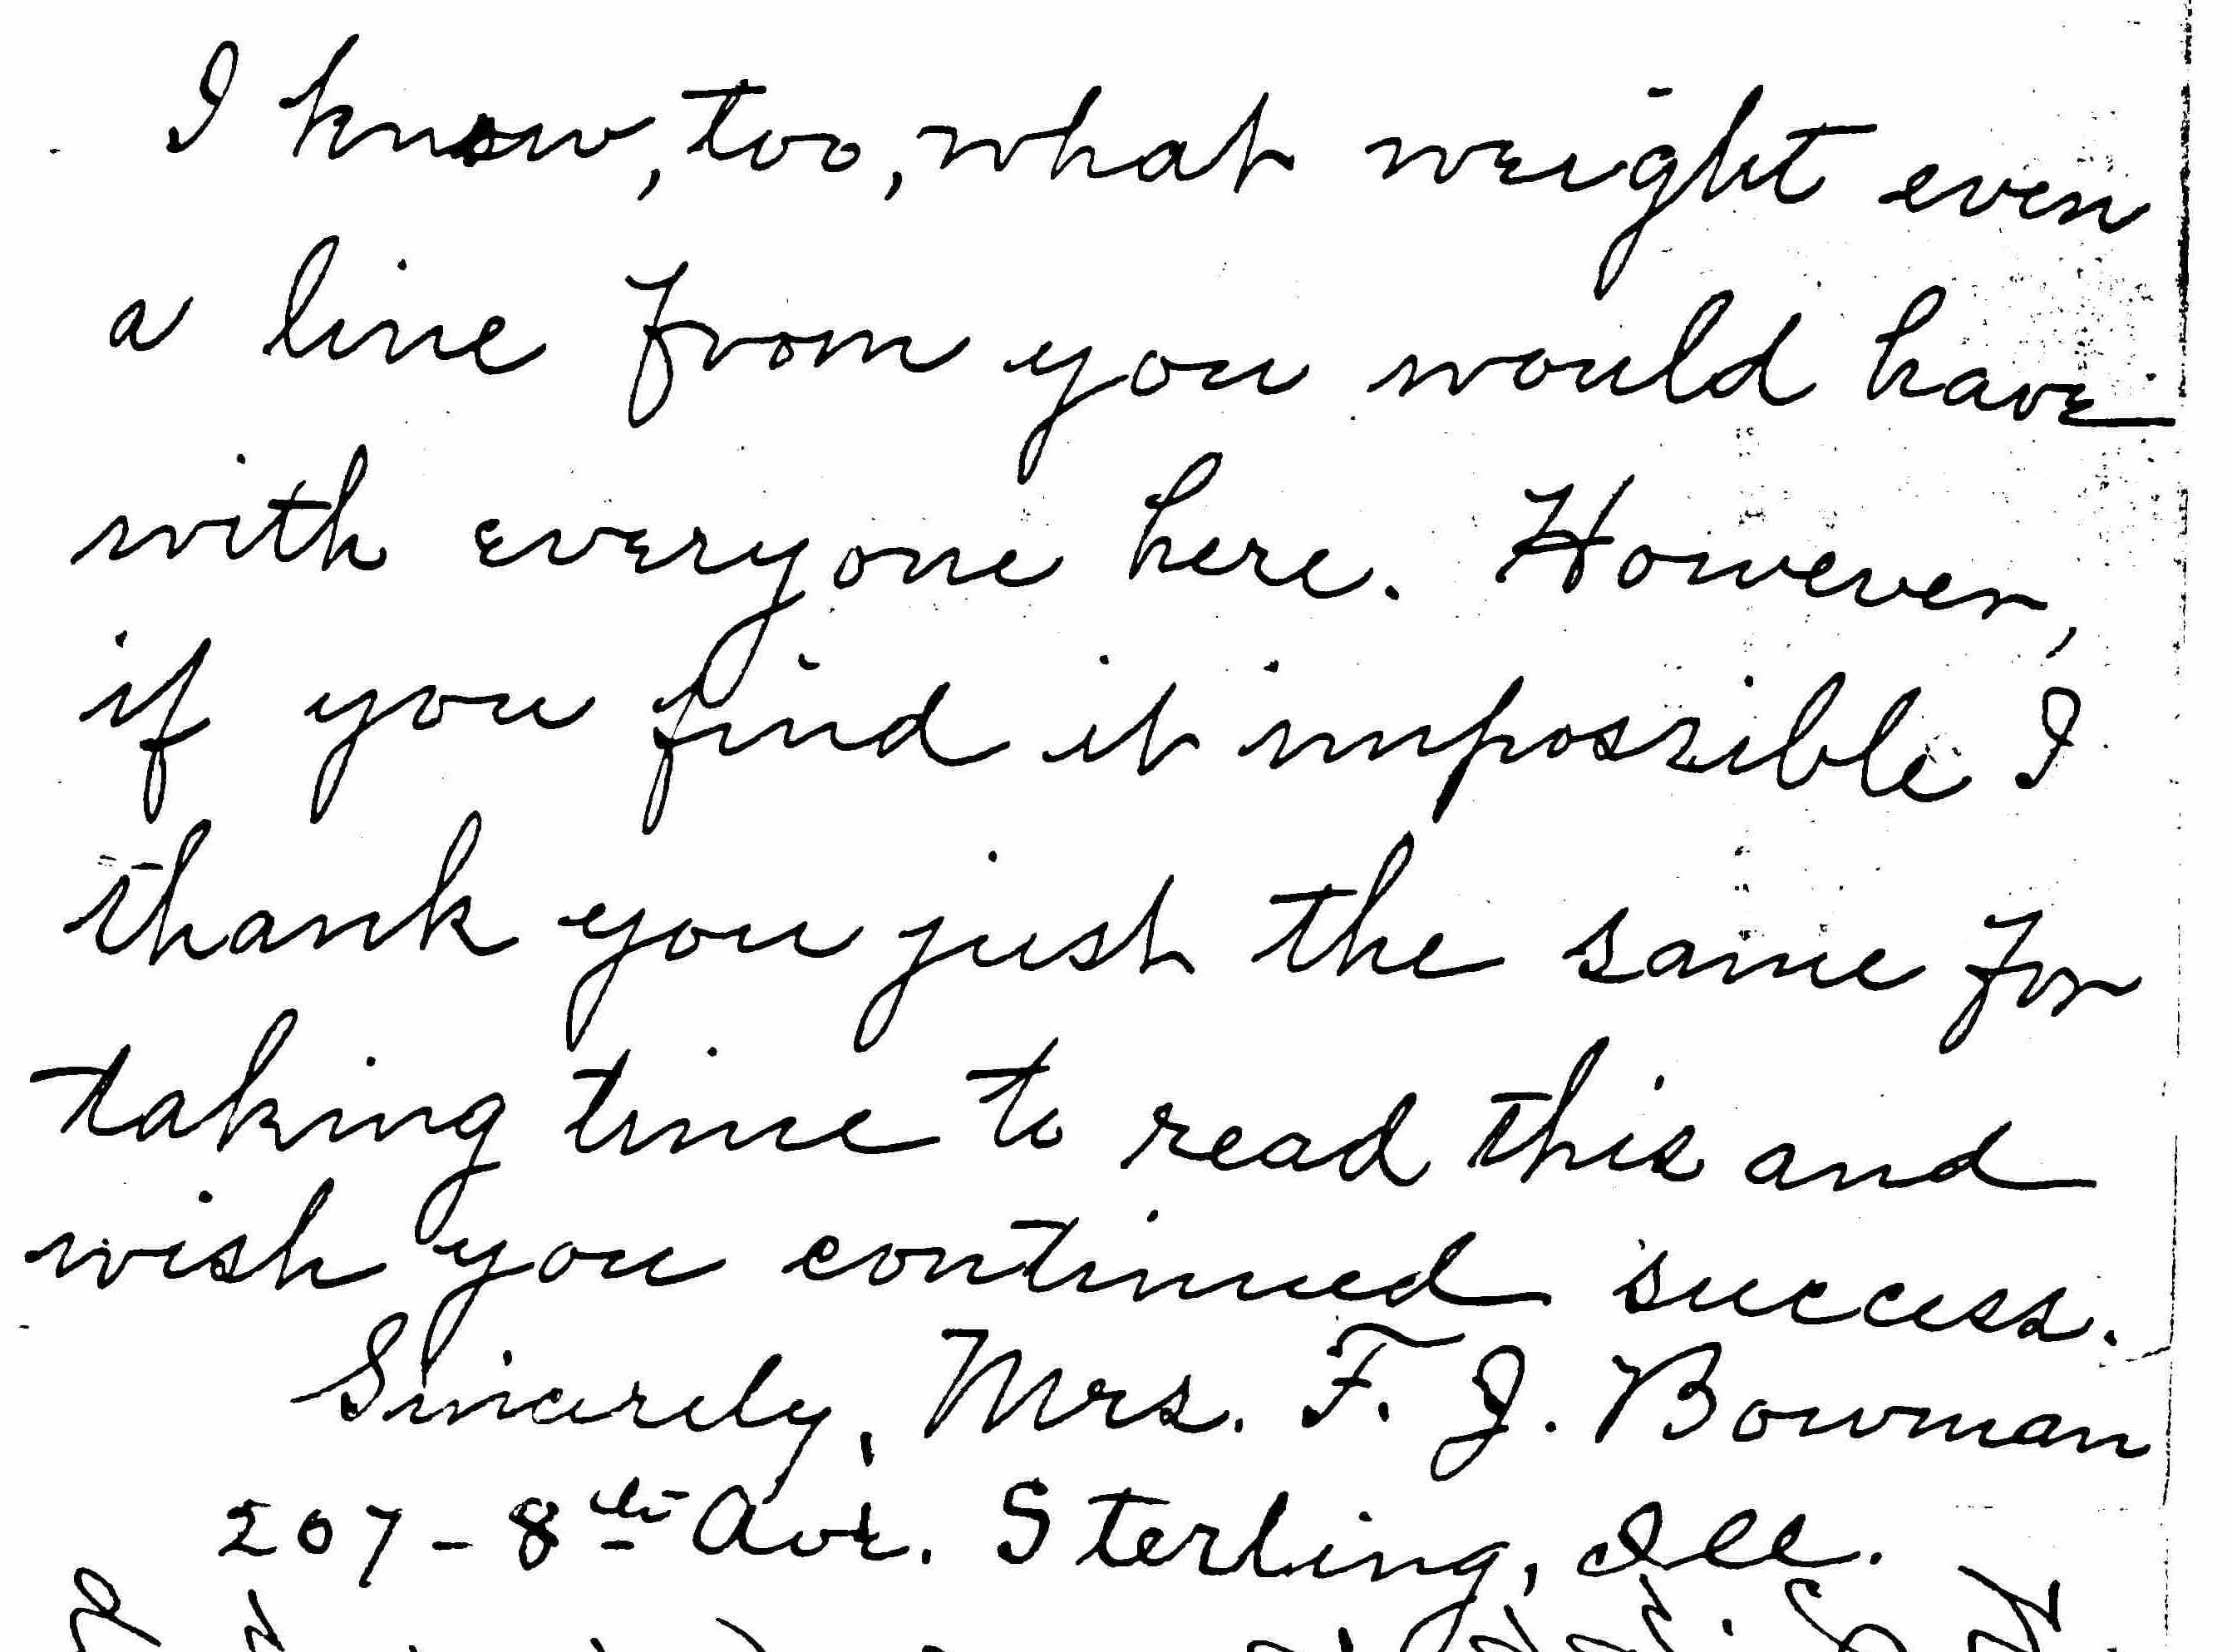 I know, too, what weight even
a line from you would have
with everyone here. However,
if you find it impossible I
thank you just the same for
taking time to read this and
wish you continued success.
Sincerely, Mrs. F. J. Bowman
207 - 8th Ave. Sterling, Ill.